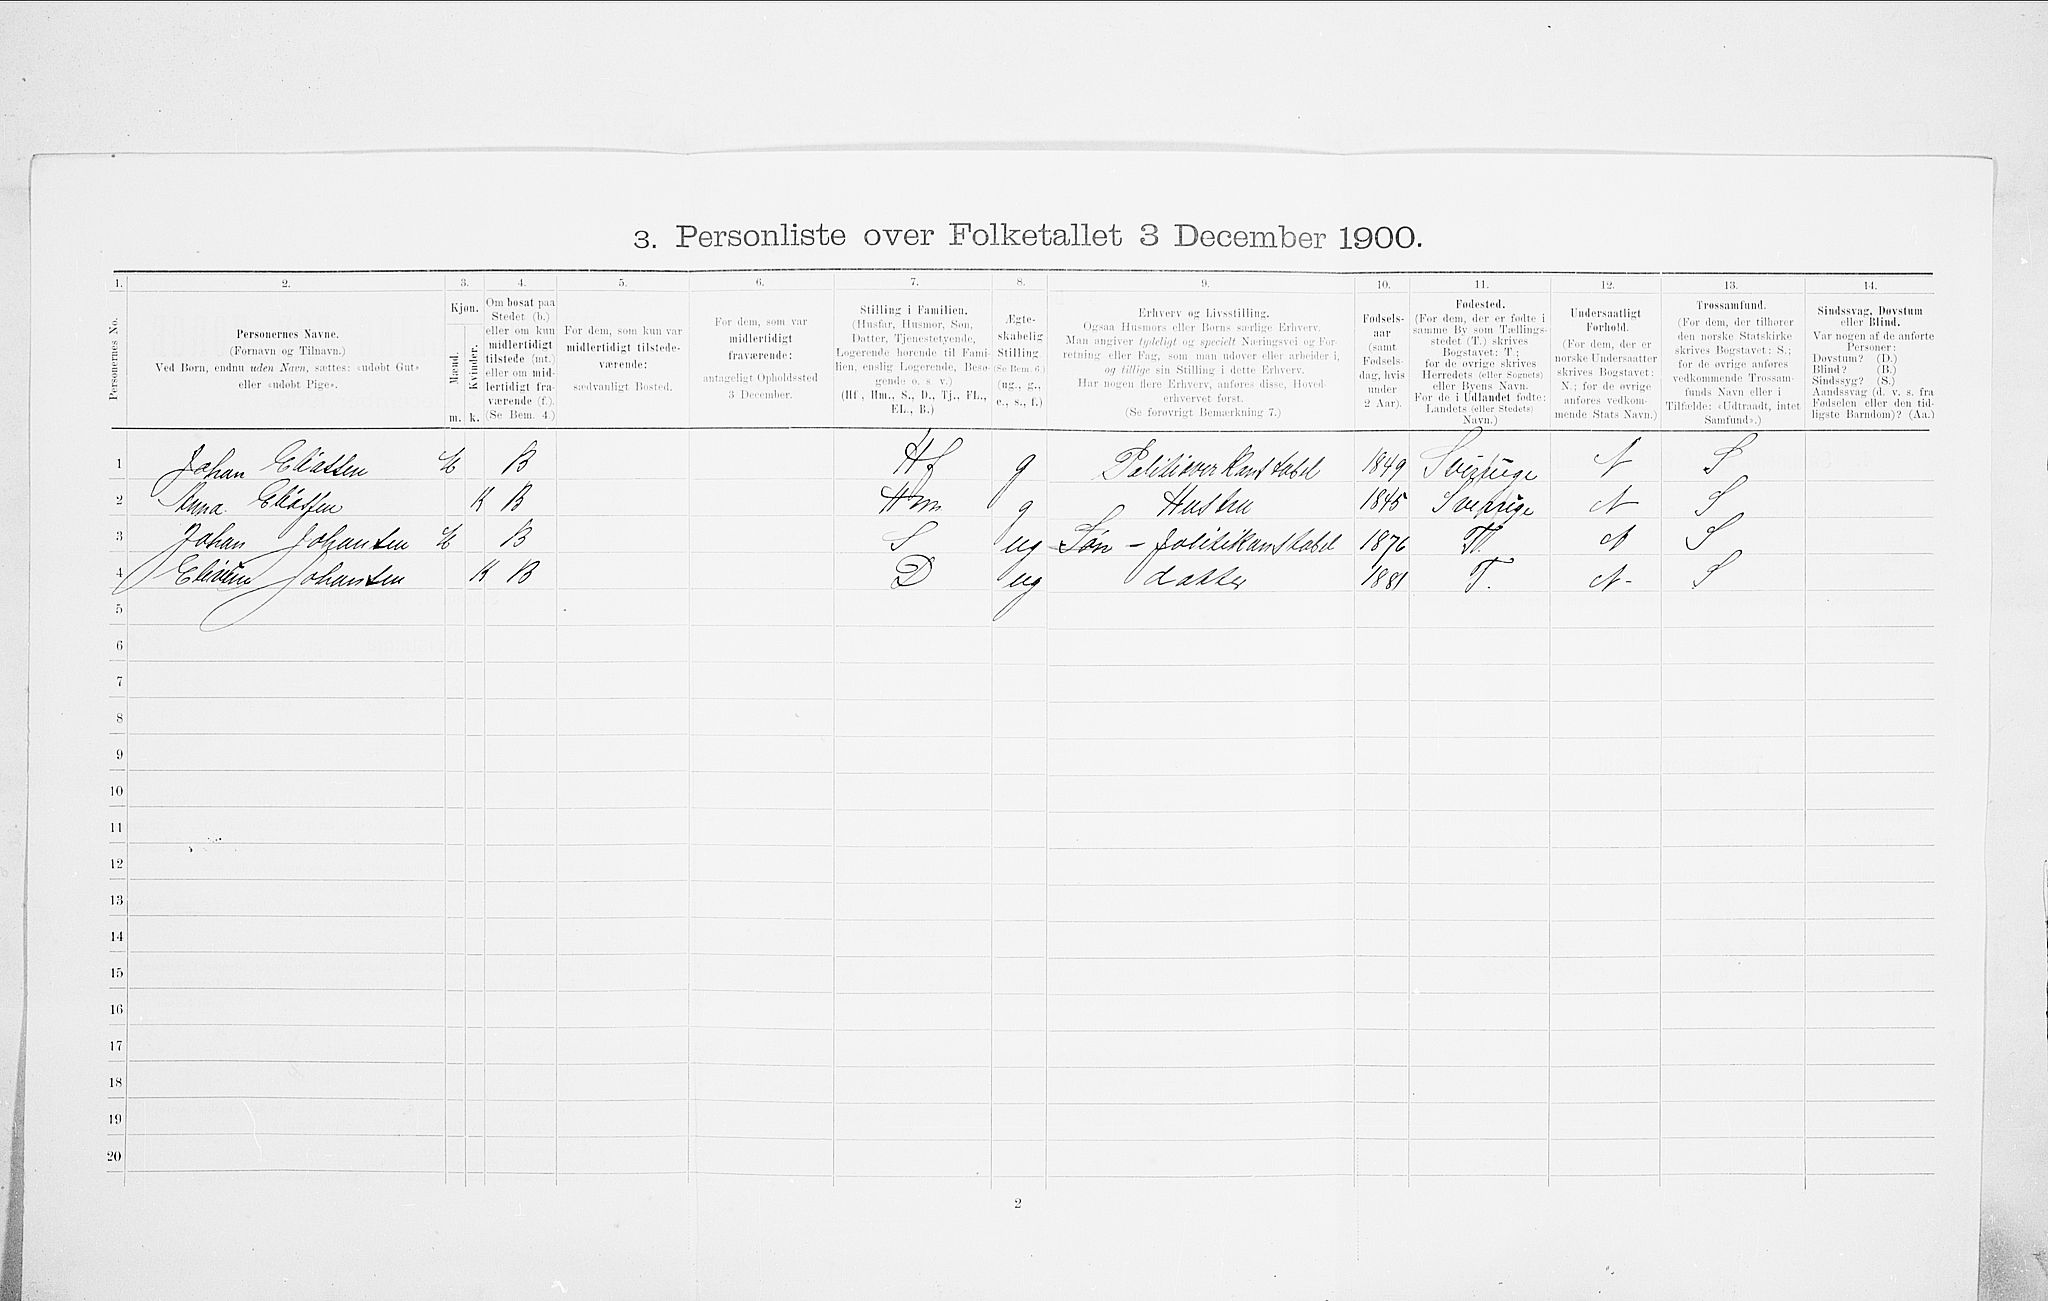 3. Personliste over Folketallet 3 December 1900.
1. 2. 3. 4. 5. 6. 7. 8. 9. 10. 11. 12. 13. 14.
Personernes No.
Personernes Navne.
(Fornavn og Tilnavn.)
Ved Børn, endnu uden Navn, sættes: «udøbt Gut»
eller «udøbt Pige».
Kjøn.
Mænd.
Kvinder.
m. k.
Om bosat paa
Stedet (b.)
eller om kun
midlertidigt
tilstede (mt.)
eller om mid-
lertidigt fra-
værende (f.).
(Se Bem. 4.)
For dem, som kun var
midlertidigt tilstede-
værende:
sædvanligt Bosted.
For dem, som var
midlertidigt
fraværende:
antageligt Opholdssted
3 December.
Stilling i Familien.
(Husfar, Husmor, Søn,
Datter, Tjenestetyende,
Logerende hørende til Fami-
lien, enslig Logerende, Besø-
gende o. s. v.)
(Hf., Hm., S., D., Tj., FL.,
EL., B.)
Ægte-
skabelig
Stilling.
(Se Bem. 6.)
(ug., g.,
e., s., f.)
Erhverv og Livsstilling.
Ogsaa Husmors eller Børns særlige Erhverv.
Man angiver tydeligt og specielt Næringsvei og For-
retning eller Fag, som man udøver eller arbeider i,
og tillige sin Stilling i dette Erhverv.
Har nogen flere Erhverv, anføres disse, Hoved-
erhvervet først.
(Se forøvrigt Bemærkning 7.)
Fødsels-
aar
(samt
Fødsels-
dag, hvis
under
2 Aar).
Fødested.
(For dem, der er fødte i
samme By som Tællings-
stedet (T.) skrives
Bogstavet: T.;
for de øvrige skrives
Herredets (eller Sognets)
eller Byens Navn.
For de i Udlandet fødte:
Landets (eller Stedets)
Navn.)
Undersaatligt
Forhold.
(For dem, der er
norske Undersaatter
skrives Bogstavet:
N.; for de øvrige
anføres vedkom-
mende Stats Navn.)
Trossamfund.
(For dem, der tilhører
den norske Statskirke
skrives Bogstavet: S.;
for de øvrige anføres
vedkommende Trossam-
funds Navn eller i
Tilfælde: «Udtraadt, intet
Samfund».)
Sindssvag, Døvstum
eller Blind.
Var nogen af de anførte
Personer:
Døvstum? (D.)
Blind? (B.)
Sindssyg? (S.)
Aandssvag (d. v. s. fra
Fødselen eller den tid-
ligste Barndom)? (Aa.)
1 Johan Eliassen B Hf g Politioverkonstabel 1849 N S
2 Anna Eliassen K B Hm g Hustru 1845 Sverige N S
3 Johan Johansen B S ug Søn - Politikonstabel 1876 T. N S
4 Johansen K B D ug datter 1881 T. N- S
5
6
7
8
9
10
11
12
13
14
15
16
17
18
19
20
2